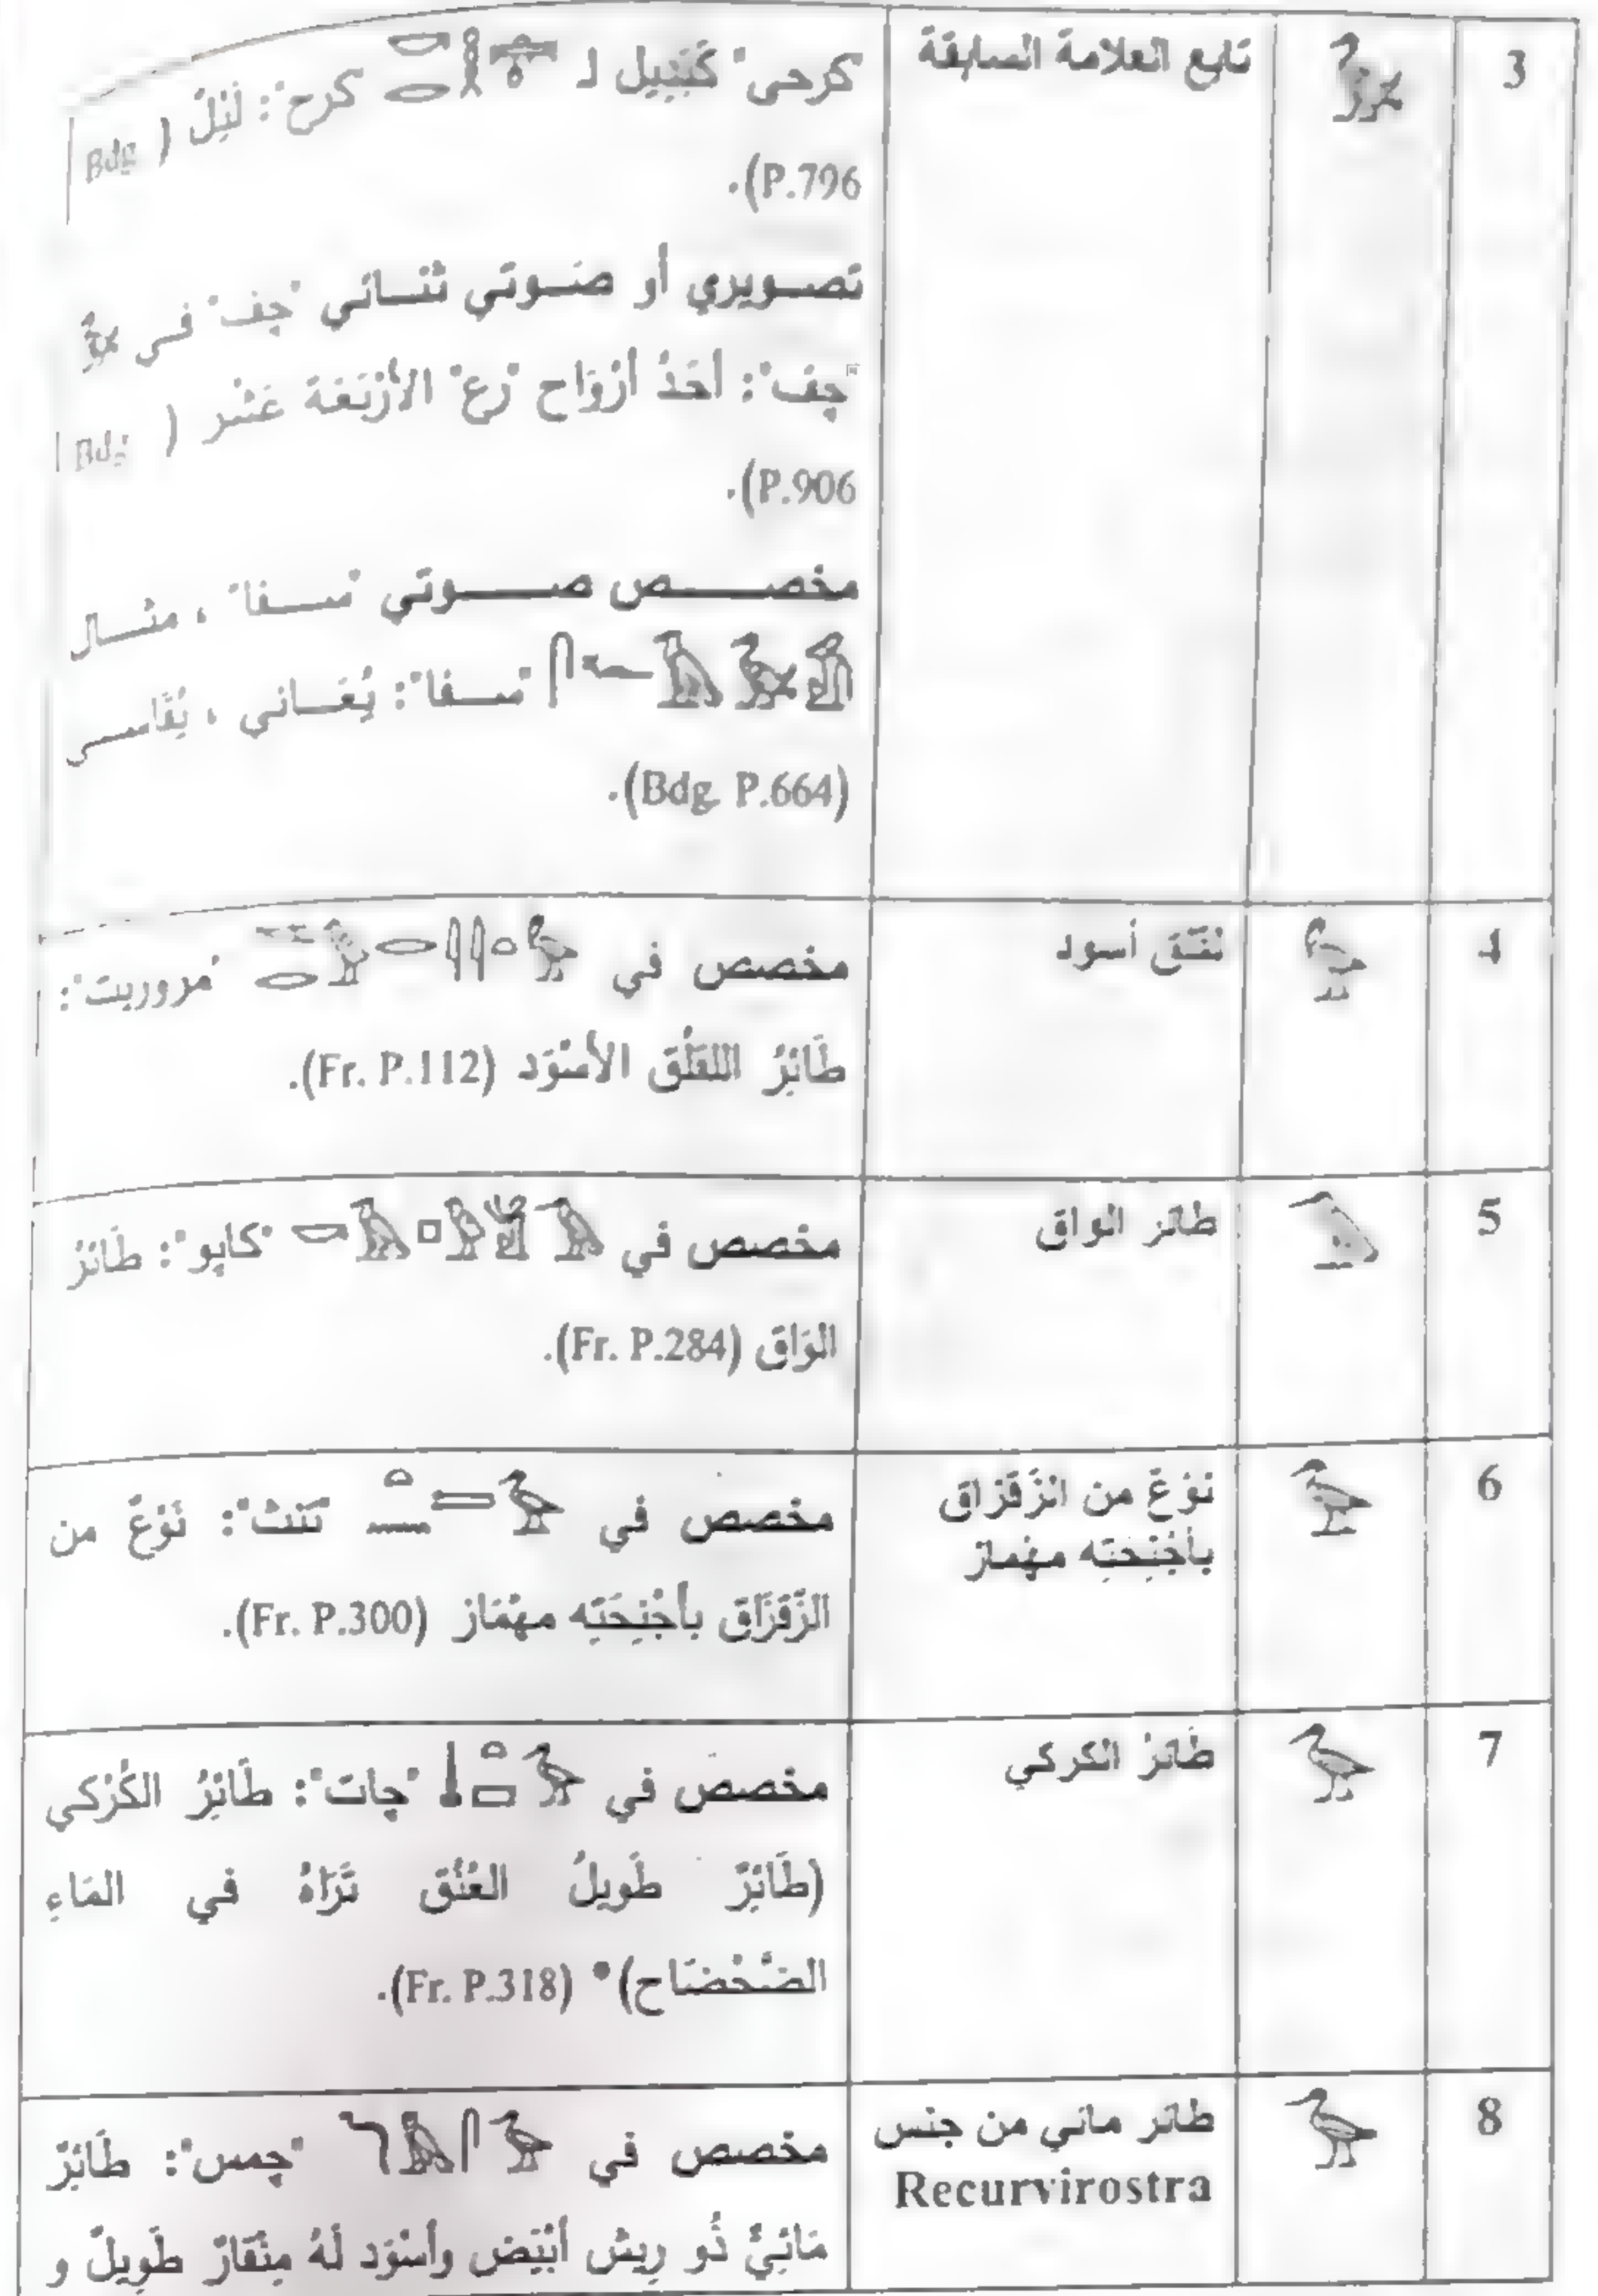 3
تابع العلامة السابقة
"كرحى" كَبَدِيل لـ 𓎡𓂋𓎛𓇰 "كرح": لَيْلٌ (Bdg
P.796).
تصويري أو صَوتي ثنائي "چف" في
"چف": أحَدُ أرْوَاح "رع" الأرْبَعَة عَشْر (Bdg
P.906).
مخصص صوتي "سفا" ، مثال
"سفا": يُعَاني ، يُقَاسى
(Bdg. P.664).
4
لقلق أسود
مخصص في "مروريت":
طَائِرُ اللقلَق الأسْوَد (Fr. P.112).
5
طائر الواق
مخصص في "كاپو": طَائرُ
الوَاق (Fr. P.284).
6
نَوْعٌ من الزَّقزَاق
بأجْنِحتِه مهْماز
مخصص في "تنث": نَوْعٌ من
الزَّقزَاق بأجْنِحَتِه مهْمَاز (Fr. P.300).
7
طَائرُ الكركي
مخصص في "چات": طَائِرُ الكُرْكي
(طَائِرٌ طَويلُ العُنُق تَرَاهُ في المَاءِ
الضَّحْضَاح)* (Fr. P.318).
8
طائر مائي من جنس
Recurvirostra
مخصص في "چمس": طَائِرٌ
مَائيٌّ ذُو رِيش أبْيَض وأسْوَد لَهُ مِنْقارٌ طَويلٌ و